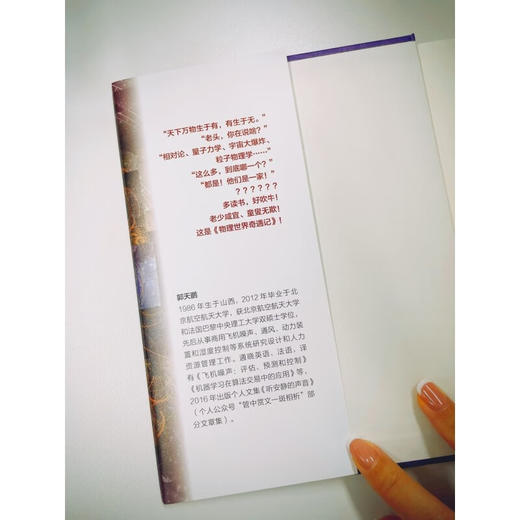 “天下万物生于有，有生于无。”
“老头，你在说啥？”
“相对论、量子力学、宇宙大爆炸、
粒子物理学……”
“这么多，到底哪一个？”
“都是！他们是一家！”
？？？？？？
多读书，好吹牛！
老少咸宜、童叟无欺！
这是《物理世界奇遇记》！
郭天鹏
1986 年生于山西，2012 年毕业于北
京航空航天大学，获北京航空航天大学
和法国巴黎中央理工大学双硕士学位，
先后从事商用飞机噪声、通风、动力装
置和湿度控制等系统研究设计和人力
资源管理工作。通晓英语、法语，译
有《飞机噪声：评估、预测和控制》
《机器学习在算法交易中的应用》等，
2016 年出版个人文集《听安静的声音》
（个人公众号“管中赏文一斑相析”部
分文章集）。